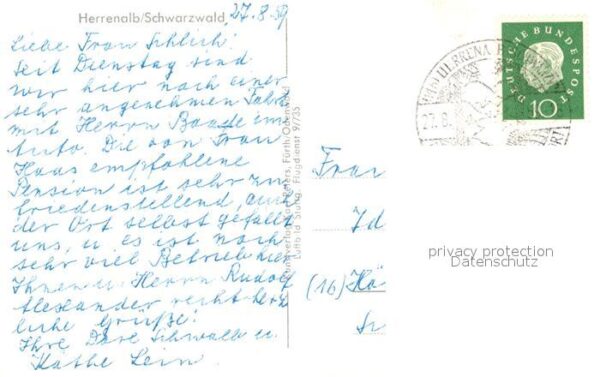 Herrenalb/Schwarzwald
27.8.59
Liebe Frau Schlich!
Seit Dienstag sind
wir hier nach einer
sehr angenehmen Fahrt
mit Herrn Baade im
Auto. Die von Frau
Haas empfohlene
Pension ist sehr zu-
friedenstellend, auch
der Ort selbst gefällt
uns, u. es ist noch
sehr viel Betrieb hier
Ihnen u. Herrn Rudolf
Alexander recht herz
liche Grüße!
Ihre Dore Schwalb u.
Käthe Lein.
Fürth/Odenwald
Luftbild Stuttg. Flugdienst 97/35
HERRENALB
27.8.
DEUTSCHE BUNDESPOST
10
Frau
Id
(16) Hö
privacy protection
Datenschutz